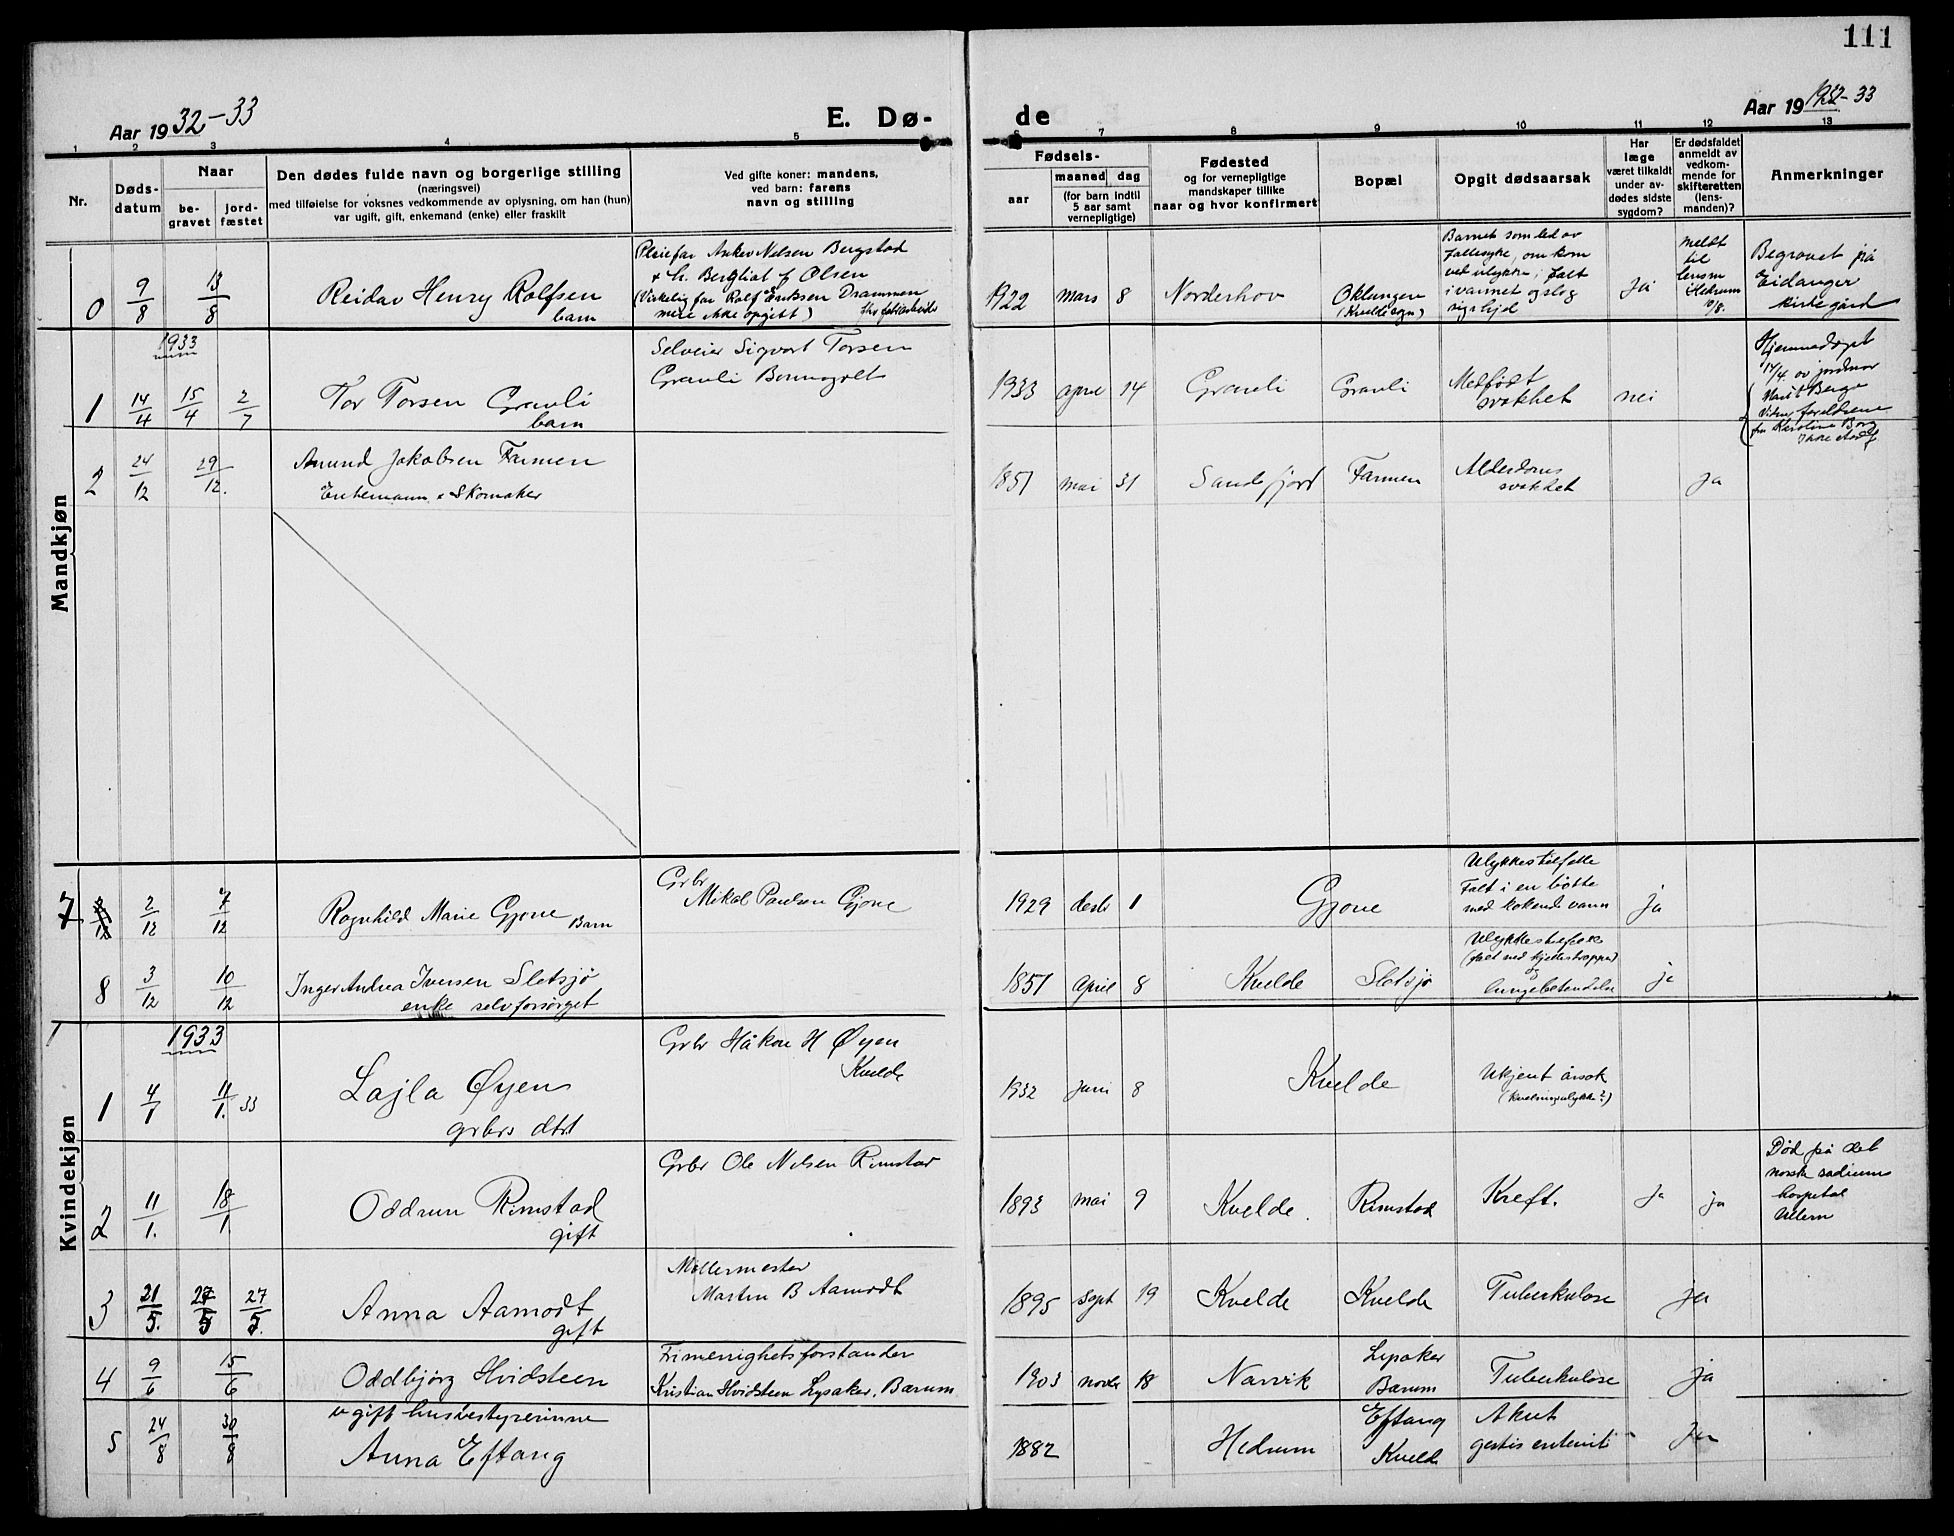 111
Aar 1932-33
E. Dø-
de
Aar 1932-33
1 2 3 4 5 6 7 8 9 10 11 12 13
Nr.
Døds-
datum
Naar
be-
gravet
jord-
fæstet
Den dødes fulde navn og borgerlige stilling
(næringsvei)
med tilføielse for voksnes vedkommende av oplysning, om han (hun)
var ugift, gift, enkemand (enke) eller fraskilt
Ved gifte koner: mandens,
ved barn: farens
navn og stilling
Fødsels-
aar
maaned dag
(for barn indtil
5 aar samt
vernepligtige)
Fødested
og for vernepligtige
mandskaper tillike
naar og hvor konfirmert
Bopæl
Opgit dødsaarsak
Har
læge
været tilkaldt
under av-
dødes sidste
sygdom?
Er dødsfaldet
anmeldt av
vedkom-
mende for
skifteretten
(lens-
manden)?
Anmerkninger
Mandkjøn
0 9/8 13/8
Reidar Henry Rolfsen
barn
Pleiefar Anker Nilsen Bergstad
& h. Bergliot f Olsen
(Virkelig far Rolf Eriksen Drammen
mere ikke opgitt)
1922 mars 8 Norderhov
Oklungen
(Kvelde sogn)
Barnet som led av
fallesyke, om kom
ved ulykke; falt
i vannet og slog
sig ihjel
Ja
Meldt
til
lensm
i Hedrum
10/8.
Begravet på
Eidanger
kirkegård
1933
1 14/4 15/4 2/7
Tor Torsen Gravli
barn
Selveier Sigvart Torsen
Gravli
1933 april 14 Gravli Gravli
Medfødt
svakhet
nei
Hjemmedøpt
14/4. av jordmor
Marit Berge
foreldrene
fru Karoline Borg
2 24/12 29/12.
Anund Jakobsen Farmen
Enkemann & Skomaker
1851 mai 31 Sandefjord Farmen
Alderdoms
svakhet
Ja
7 2/12 7/12
Ragnhild Marie Gjone Barn
Grbr
Mikal Paulsen Gjone
1929 desbr 1 Gjone
Ulykkestilfelle
Falt i en bøtte
med kokende vann
ja
8 3/12 10/12
Inger Andrea Iversen Sletsjø
enke selvforsørget
1851 April 8 Kvelde Sletsjø
Ulykkestilfelle
(falt ned kjellertrappen)
og
lungebetendelse
ja
Kvindekjøn
1933
1 4/1 11/1. 33
Lajla Øyen
grbrs dtr
Grbr Håkon H Øyen
Kvelde
1932 Juni 8 Kvelde
Ukjent årsak
(kvelningsulykke?)
2 11/1. 18/1.
Oddrun Rimstad
gift
Grbr Ole Nilsen Rimstad
1893 mai 9 Kvelde. Rimstad Kreft. Ja ja
Død på det
norske radiums
hospital
Ullern
3 21/5. 27/5 27/5.
Anna Aamodt
gift
Møllermester
Martin B Aamodt
1895 sept 19 Kvelde Kvelde Tuberkulose ja
4 9/6 15/6
Oddbjørg Hvidsteen
Frimenighetsforstander
Kristian Hvidsteen Lysaker, Bærum
1903 novbr 18 Narvik
Lysaker
Bærum
Tuberkulose ja
5 24/8 30/8
ugift husbestyrerinne
Anna Eftang
1882 Hedrum
Eftang
Kvelde
Akut
Ja